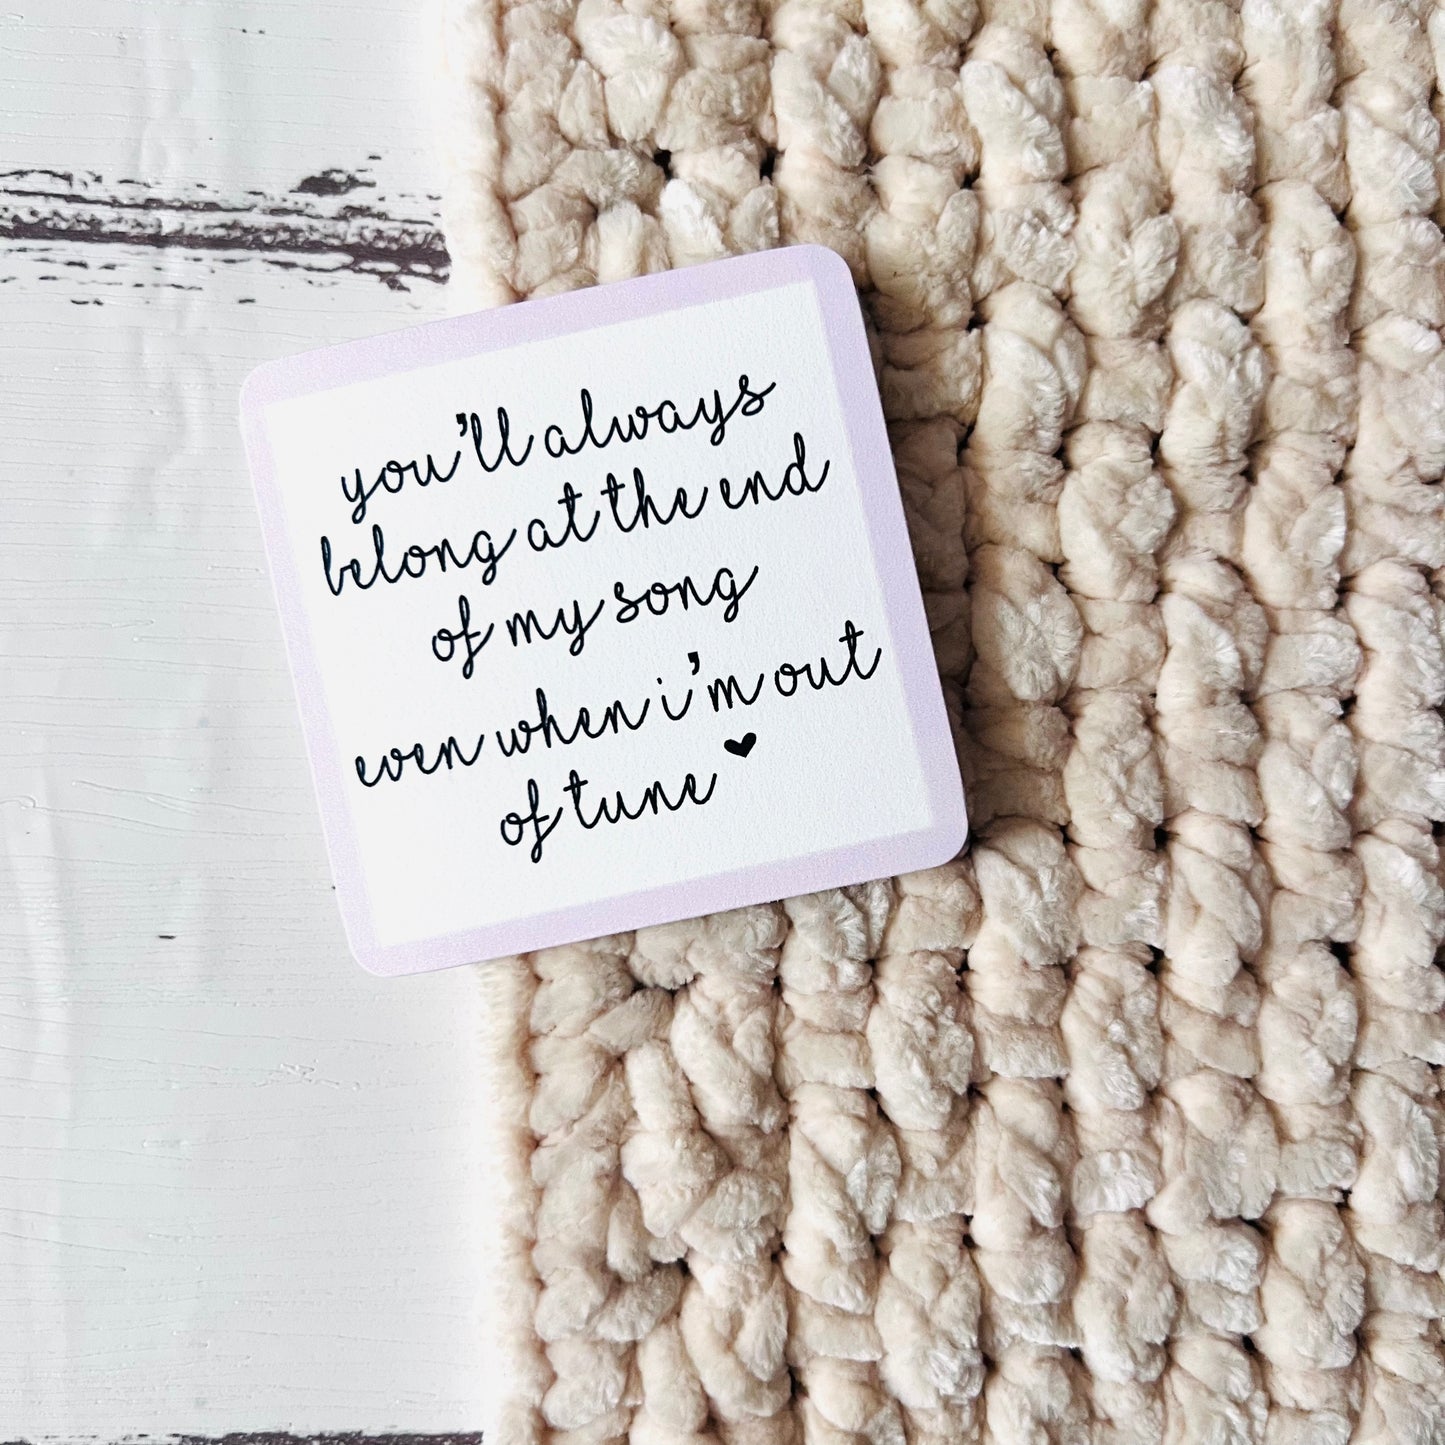 you'll always
belong at the end
of my song
even when i'm out
of tune